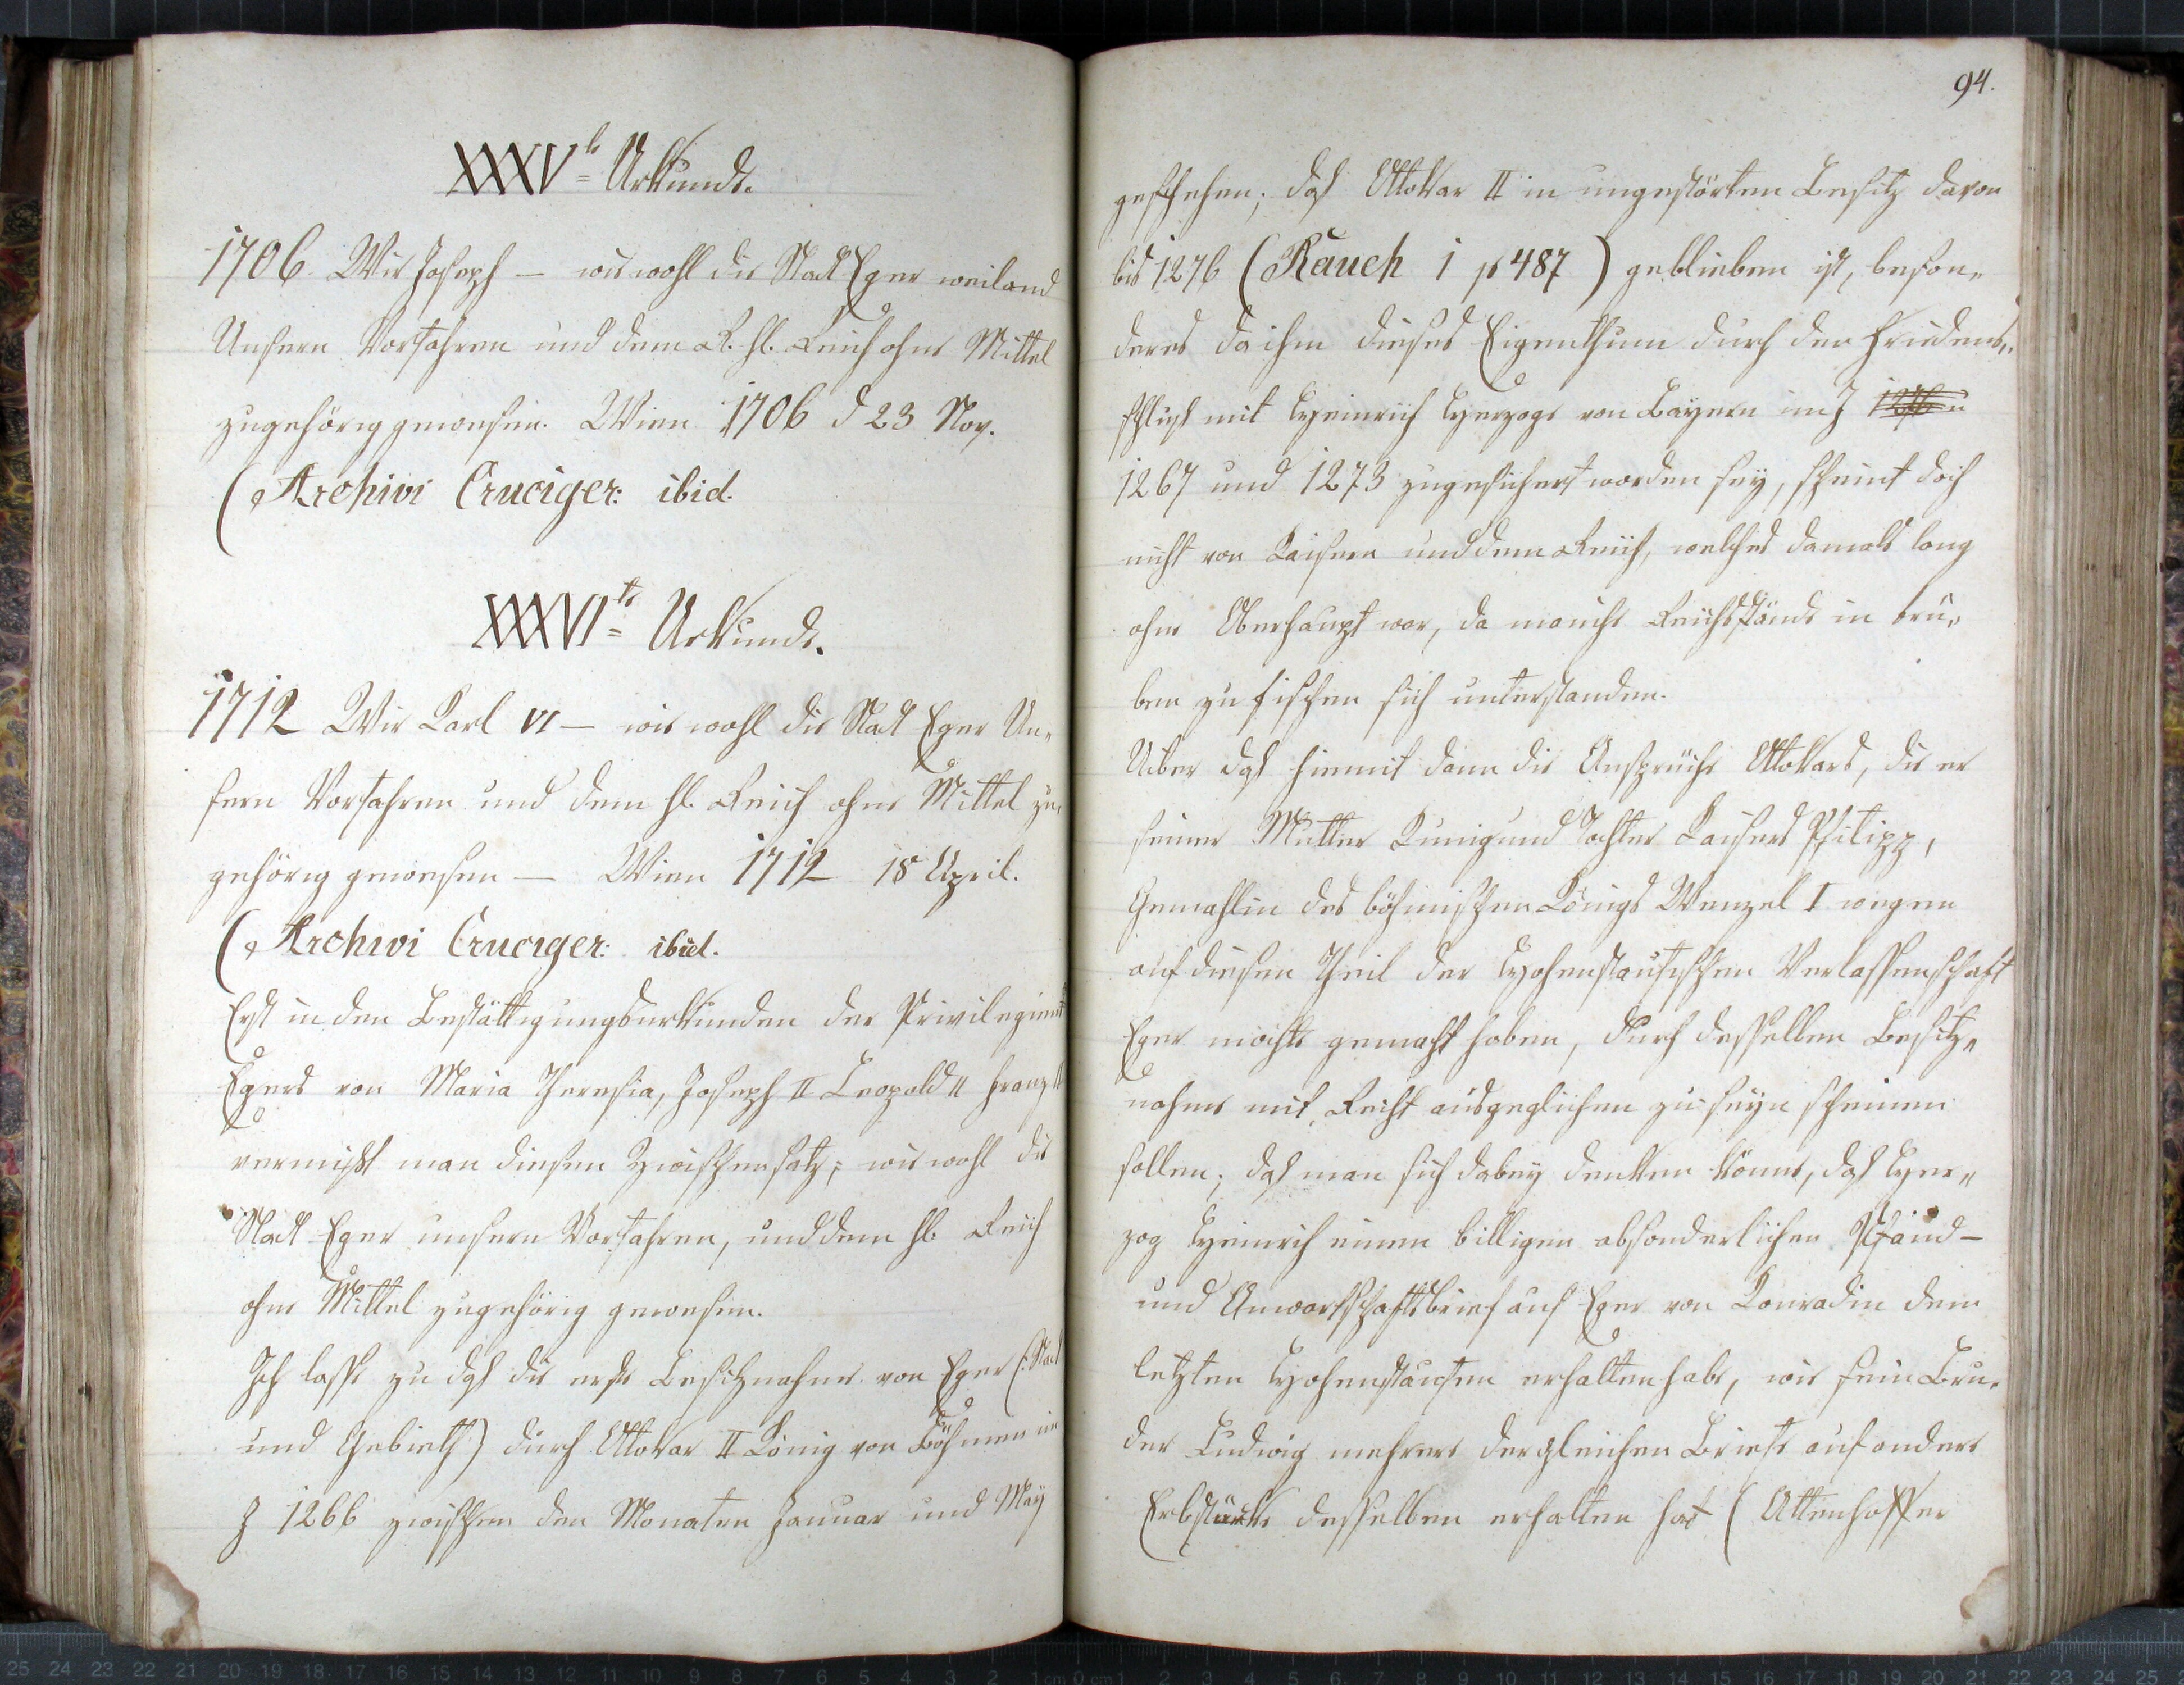 XXXVte Urkunde.
1706 Wir Joseph — wie wohl die Stadt Eger weiland
Unsern Vorfahren und dem R. hl. Reich ohne Mittel
zugehörig gewesen. Wien 1706 d 23 Nov.
(Archivi Cruciger: ibid.
XXXVIte Urkunde.
1712 Wir Karl VI — wie wohl die Stadt Eger Un„
sern Vorfahren und dem hl. Reich ohne Mittel zu„
gehörig gewesen — Wien 1712 18 April.
(Archivi Cruciger: ibid.
Erst in den Bestättigungsurkunden der Privilegien
Egers von Maria Theresia, Joseph II Leopold II Franz II
vermißt man diesen Zwischensatz; wie wohl die
Stadt Eger unsern Vorfahren, und dem hl. Reich
ohne Mittel zugehörig gewesen.
Ich lasse zu daß die erste Besitznahme von Eger (: Stadt
und Gebieth) durch Ottokar II König von Böhmen im
J 1266 zwischen den Monaten Januar und May
94.
geschehen; daß Ottokar II in ungestörten Besitz davon
bis 1276 (Rauch 1 p 487) geblieben ist, beson„
deres da ihm dieses Eigenthum durch den Friedens„
schluß mit Heinrich Herzoge von Bayern im J
1267 und 1273 zugesichert worden sey, scheint doch
nicht von Kaisern und dem Reich, welches damals lang
ohne Oberhaupt war, da manche Reichsstände in trü„
ben zu fischen sich unterstanden.
Uiber daß hiemit dann die Ansprüche Ottokars, die er
seiner Mutter Kunigund Tochter Kaisers Philipp,
Gemahlin des böhmischen Königs Wenzel I wegen
auf diesen Theil der Hohenstaufischen Verlassenschaft
Eger mochte gemacht haben, durch desselben Besitz„
nahme mit Recht ausgeglichen zu seyn scheinen
sollen; daß man sich dabey denken könne, daß Her„
zog Heinrich einen billigen absonderlichen Pfand–
und Anwartschaftsbrief auf Eger von Konradin dem
letzten Hohenstaufen erhalten habe, wie sein Bru„
der Ludwig mehrere dergleichen Briefe auf andere
Erbstücke desselben erhalten hat (Attenhoffer